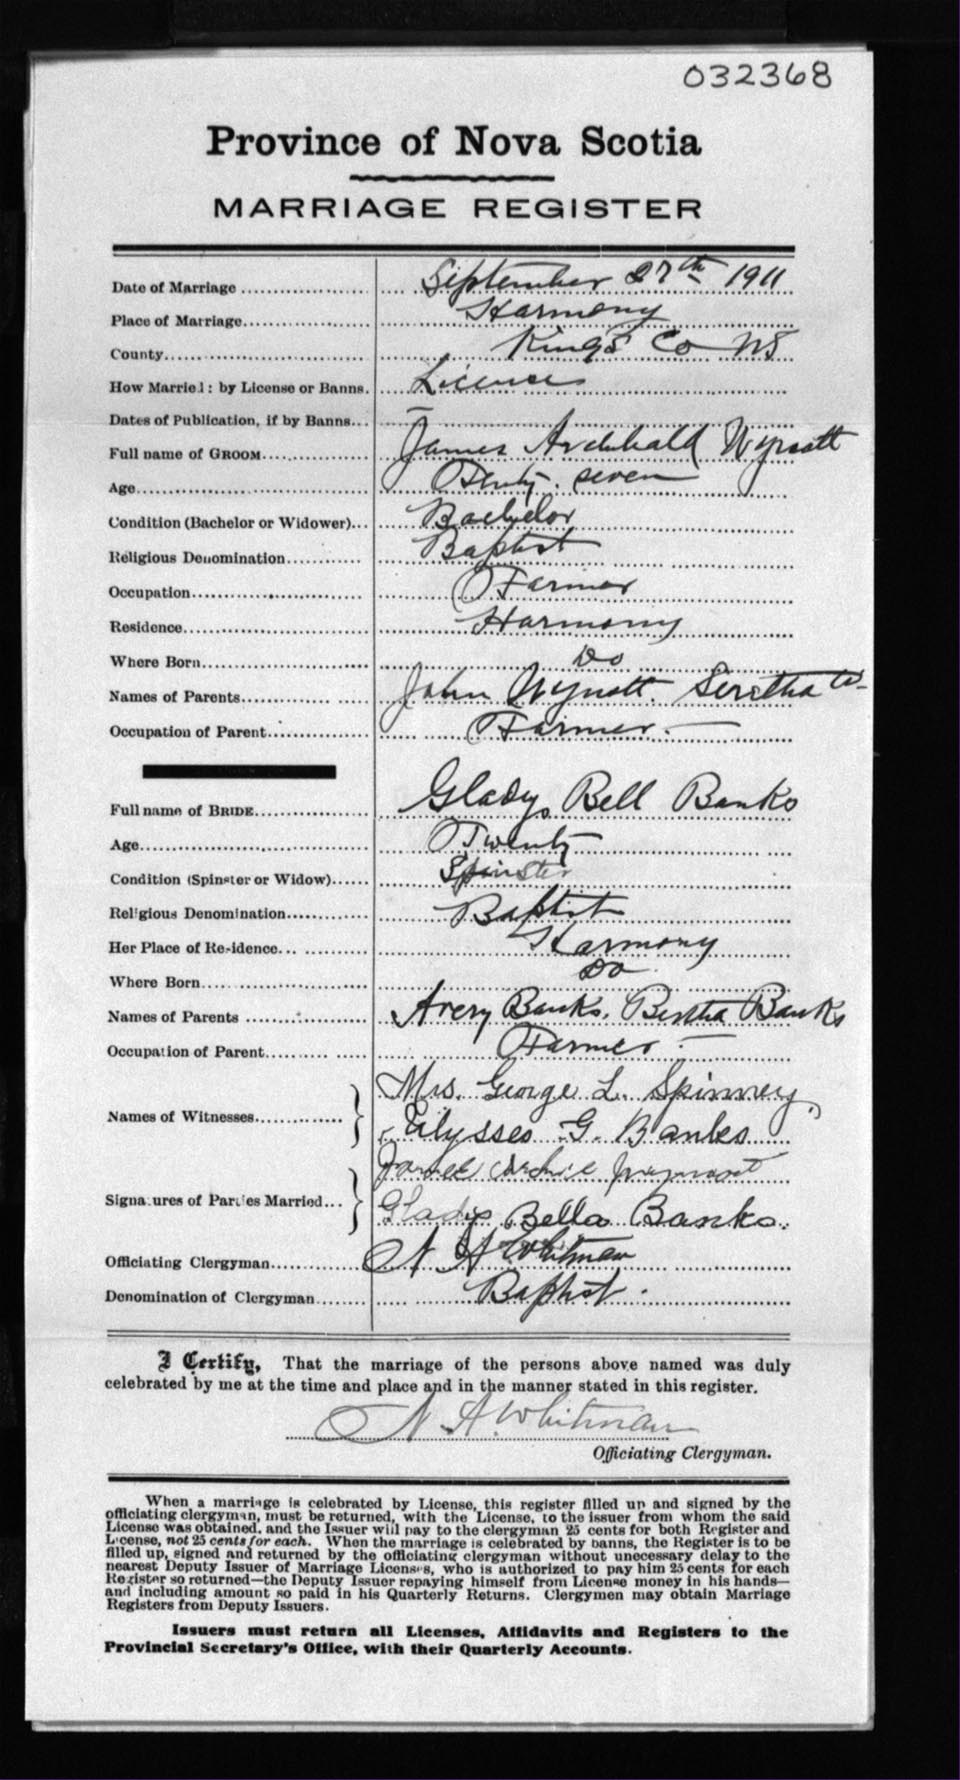 032368
Province of Nova Scotia
MARRIAGE REGISTER
Date of Marriage September 27th 1911
Place of Marriage Harmony
County King's Co NS
How Married: by License or Banns. License
Dates of Publication, if by Banns... —
Full name of GROOM James Archibald Wynott
Age Twenty-seven
Condition (Bachelor or Widower)... Bachelor
Religious Denomination Baptist
Occupation Farmer
Residence Harmony
Where Born Do
Names of Parents John Wynott. Seretha W
Occupation of Parent Farmer. —
Full name of BRIDE Gladys Bell Banks
Age Twenty
Condition (Spinster or Widow) Spinster
Religious Denomination Baptist
Her Place of Residence Harmony
Where Born Do
Names of Parents Avery Banks. Bertha Banks
Occupation of Parent Farmer. —
Mrs. George L. Spinney,
Names of Witnesses Ulysses G. Banks
James Archie Wynott
Signatures of Parties Married... Gladys Bella Banks.
Officiating Clergyman N A Whitman
Denomination of Clergyman Baptist.
I Certify, That the marriage of the persons above named was duly
celebrated by me at the time and place and in the manner stated in this register.
N A. Whitman
Officiating Clergyman.
When a marriage is celebrated by License, this register filled up and signed by the
officiating clergyman, must be returned, with the License, to the issuer from whom the said
License was obtained, and the Issuer will pay to the clergyman 25 cents for both Register and
License, not 25 cents for each. When the marriage is celebrated by banns, the Register is to be
filled up, signed and returned by the officiating clergyman without unecessary delay to the
nearest Deputy Issuer of Marriage Licenses, who is authorized to pay him 25 cents for each
Register so returned—the Deputy Issuer repaying himself from License money in his hands—
and including amount so paid in his Quarterly Returns. Clergymen may obtain Marriage
Registers from Deputy Issuers.
Issuers must return all Licenses, Affidavits and Registers to the
Provincial Secretary's Office, with their Quarterly Accounts.